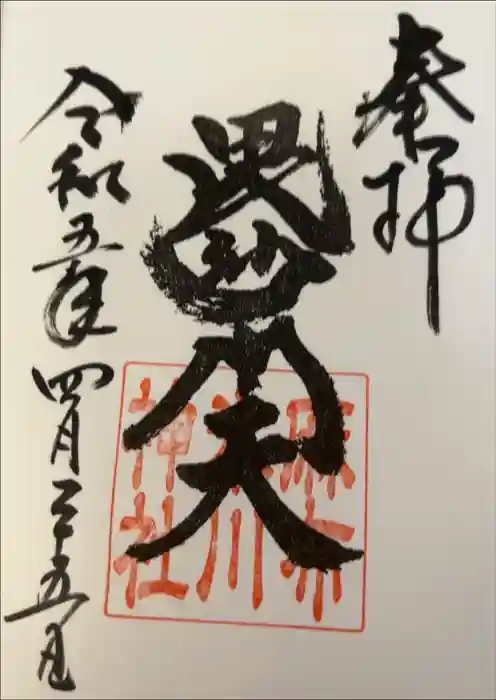 奉拝
毘沙門天
麻布
氷川
神社
令和五年四月二十五日